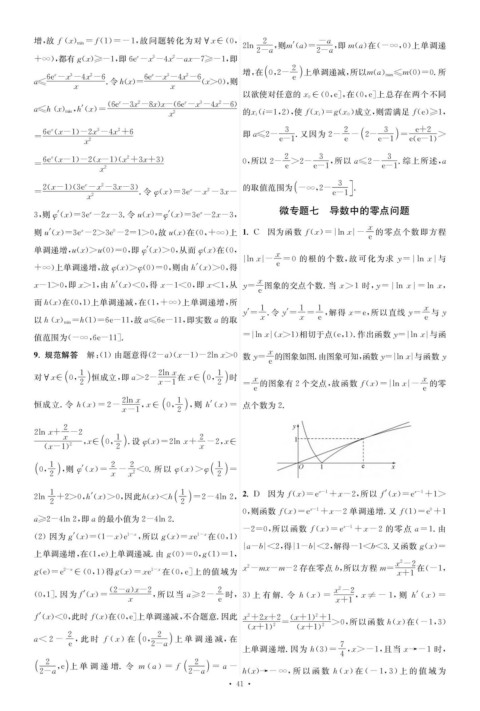 增,故 f(x)min=f(1)=-1,故问题转化为对∀x∈(0,
+∞),都有 g(x)≥-1,即 6eˣ-x³-4x²-ax-7≥-1,即
a≤(6eˣ-x³-4x²-6)/x. 令 h(x)=(6eˣ-x³-4x²-6)/x (x>0),则
a≤h(x)min,h′(x)=[(6eˣ-3x²-8x)x-(6eˣ-x³-4x²-6)]/x²
=[6eˣ(x-1)-2x³-4x²+6]/x²
=[6eˣ(x-1)-2(x-1)(x²+3x+3)]/x²
=[2(x-1)(3eˣ-x²-3x-3)]/x². 令 φ(x)=3eˣ-x²-3x-
3,则 φ′(x)=3eˣ-2x-3. 令 u(x)=φ′(x)=3eˣ-2x-3,
则 u′(x)=3eˣ-2>3e⁰-2=1>0,故 u(x)在(0,+∞)上
单调递增,u(x)>u(0)=0,即 φ′(x)>0,从而 φ(x)在(0,
+∞)上单调递增,故 φ(x)>φ(0)=0,则由 h′(x)>0,得
x-1>0,即 x>1,由 h′(x)<0,得 x-1<0,即 x<1,从
而 h(x)在(0,1)上单调递减,在(1,+∞)上单调递增,所
以 h(x)min=h(1)=6e-11,故 a≤6e-11,即实数 a 的取
值范围为(-∞,6e-11].
9. 规范解答 解:(1) 由题意得(2-a)(x-1)-2ln x>0
对∀x∈(0,1/2)恒成立,即 a>2-2ln x/(x-1) 在 x∈(0,1/2)时
恒成立. 令 h(x)=2-2ln x/(x-1),x∈(0,1/2),则 h′(x)=
(2ln x+2/x-2)/(x-1)²,x∈(0,1/2). 设 φ(x)=2ln x+2/x-2,x∈
(0,1/2),则 φ′(x)=2/x-2/x²<0. 所以 φ(x)>φ(1/2)=
2ln 1/2+2>0,h′(x)>0,因此h(x)<h(1/2)=2-4ln 2,
a≥2-4ln 2,即 a 的最小值为 2-4ln 2.
(2) 因为 g′(x)=(1-x)e¹⁻ˣ,所以 g(x)=xe¹⁻ˣ在(0,1)
上单调递增,在(1,e)上单调递减. 由 g(0)=0,g(1)=1,
g(e)=e²⁻ᵉ∈(0,1)得g(x)=xe¹⁻ˣ在(0,e]上的值域为
(0,1]. 因为 f′(x)=[(2-a)x-2]/x,所以当 a≥2-2/e 时,
f′(x)<0,此时 f(x)在(0,e]上单调递减,不合题意. 因此
a<2-2/e,此时 f(x)在(0,2/(2-a))上单调递减,在
(2/(2-a),e)上单调递增. 令 m(a)=f(2/(2-a))=a-
2ln 2/(2-a),则m′(a)=-a/(2-a),即 m(a)在(-∞,0)上单调递
增,在(0,2-2/e)上单调递减,所以m(a)max≤m(0)=0. 所
以欲使对任意的 x₀∈(0,e],在(0,e]上总存在两个不同
的xᵢ(i=1,2),使 f(xᵢ)=g(x₀)成立,则需满足 f(e)≥1,
即 a≤2-3/(e-1). 又因为 2-2/e-(2-3/(e-1))=(e+2)/e(e-1)>
0,所以 2-2/e>2-3/(e-1),所以 a≤2-3/(e-1). 综上所述,a
的取值范围为(-∞,2-3/(e-1)].
微专题七 导数中的零点问题
1. C 因为函数 f(x)=|ln x|-x/e 的零点个数即方程
|ln x|-x/e=0 的根的个数,故可化为求 y=|ln x|与
y=x/e图象的交点个数. 当 x>1 时,y=|ln x|=ln x,
y′=1/x. 令 y′=1/x=1/e,解得 x=e,所以直线 y=x/e与 y
=|ln x|(x>1)相切于点(e,1). 作出函数 y=|ln x|与函
数 y=x/e的图象如图. 由图象可知,函数 y=|ln x|与函数 y
=x/e的图象有 2 个交点,故函数 f(x)=|ln x|-x/e的零
点个数为 2.
y
1
O 1 e x
2. D 因为 f(x)=eˣ⁻¹+x-2,所以 f′(x)=eˣ⁻¹+1>
0,则函数 f(x)=eˣ⁻¹+x-2 单调递增. 又 f(1)=e⁰+1
-2=0,所以函数 f(x)=eˣ⁻¹+x-2 的零点 a=1. 由
|a-b|<2,得|1-b|<2,解得-1<b<3. 又函数 g(x)=
x²-mx-m-2 存在零点 b,所以方程 m=(x²-2)/(x+1)在(-1,
3) 上有解. 令 h(x)=(x²-2)/(x+1),x≠-1,则 h′(x)=
(x²+2x+2)/(x+1)²=[(x+1)²+1]/(x+1)²>0,所以函数 h(x)在(-1,3)
上单调递增. 因为 h(3)=7/4,x>-1,且当 x→-1 时,
h(x)→-∞,所以函数 h(x)在(-1,3)上的值域为
· 41 ·